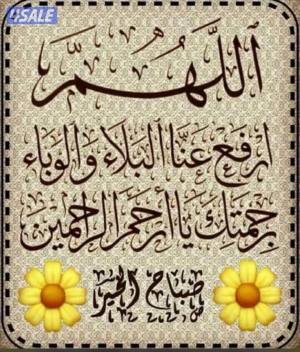 4SALE
اللهم
ارفع عنا البلاء والوباء
برحمتك يا أرحم الراحمين
صباح الخير